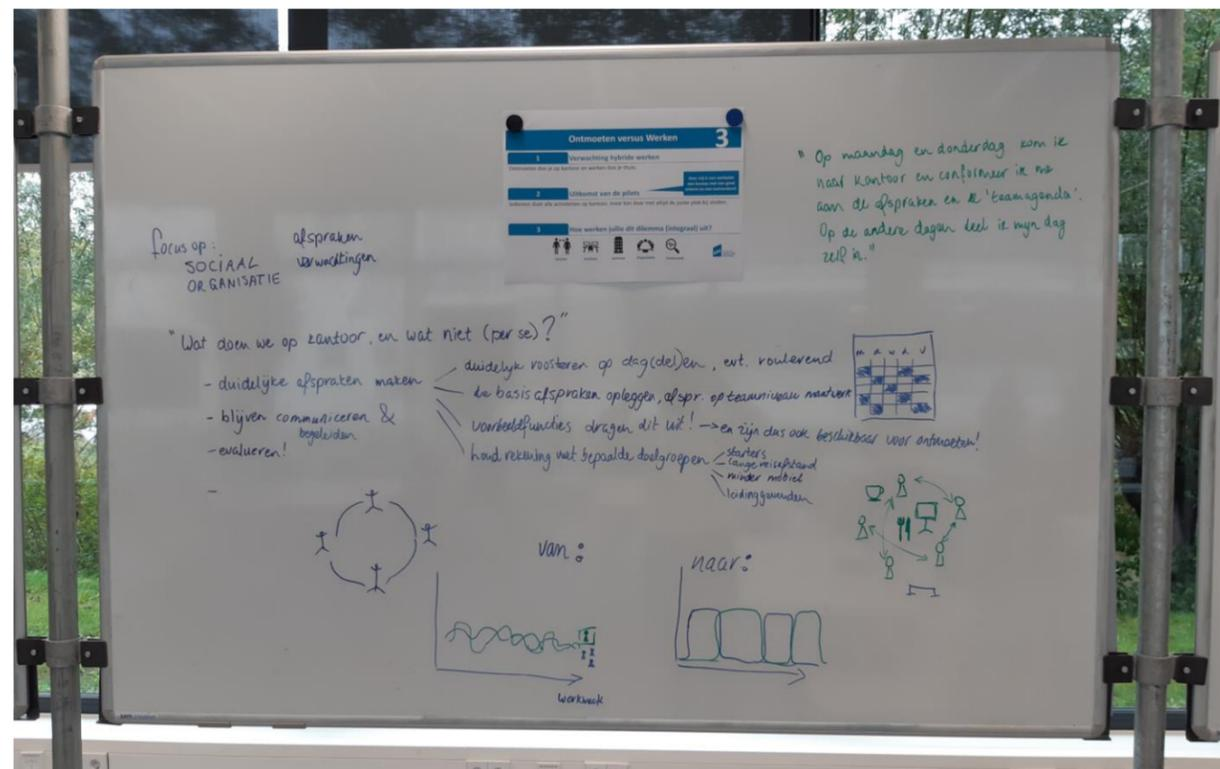 Ontmoeten versus Werken 3
1 Verwachting hybride werken
Ontmoeten doe je op kantoor en werken doe je thuis.
2 Uitkomst van de pilots
3 Hoe werken jullie dit dilemma (integraal) uit?
" Op maandag en donderdag kom ik
naar kantoor en conformeer ik me
aan de afspraken en de 'teamagenda'.
Op de andere dagen deel ik mijn dag
zelf in."
focus op: afspraken
SOCIAAL verwachtingen
ORGANISATIE
"Wat doen we op kantoor, en wat niet (per se)?"
- duidelijke afspraken maken
- blijven communiceren &
begeleiden
- evalueren!
-
duidelijk roosteren op dag(del)en, evt. roulerend
de basis afspraken opleggen, afspr. op teamniveau maatwerk
voorbeeldfuncties dragen dit uit! → en zijn dus ook beschikbaar voor ontmoeten!
houd rekening met bepaalde doelgroepen
starters
lange reisafstand
minder mobiel
leidinggevenden
M D W D V
van:
werkweek
naar: